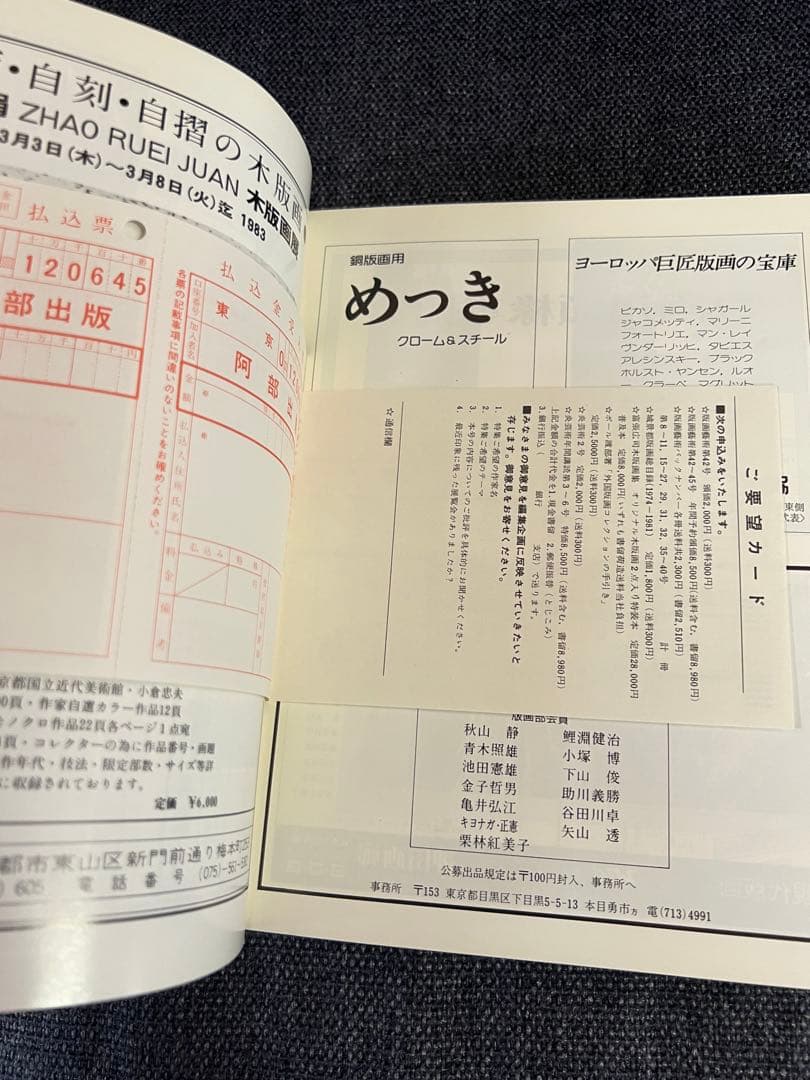 ・自刻・自摺の木版画
ZHAO RUEI JUAN 木版画展
3月3日(木)〜3月8日(火)迄 1983
払込票
120645
部出版
各票の記載事項に間違いのないことをお確めください。
払込金
口座番号
東京0
加入者名
阿部出
金額
払込人住所氏名
料金
備考
京都国立近代美術館・小倉忠夫
0頁・作家自選カラー作品12頁
モノクロ作品22頁各ページ1点宛
頁・コレクターの為に作品番号・画題
作年代・技法・限定部数・サイズ等詳
に収録されております。
定価 ¥6,000
都市東山区新門前通り梅本町
605 電話番号 (075)-561-
銅版画用
めっき
クローム&スチール
ヨーロッパ巨匠版画の宝庫
ピカソ, ミロ, シャガール
ジャコメッティ, マリーニ
フォートリエ, マン・レイ
ヴンダーリッヒ, タピエス
アレシンスキー, ブラック
ホルスト・ヤンセン, ルオ
ー クラーベ, マグリット
ご要望カード
■次の申込みをいたします。
☆版画藝術第42号 頒価2,000円 (送料300円)
☆版画藝術第42〜45号 年間予約頒価8,500円(送料含む, 書留8,980円)
☆版画藝術バックナンバー各冊送料共2,300円 (書留2,510円)
第8〜11, 15〜27, 29, 31, 32, 35〜40号 計 冊
☆城景都版画総目録(1974〜1981) 定価1,800円 (送料300円)
☆富張広司木版画集 オリジナル木版画2点入り特装本 定価28,000円
普及本 定価8,000円(いずれも書留荷造送料当社負担)
☆ポール渡部著「外国版画コレクションの手引き」
定価2,500円 (送料300円)
☆炎芸術2号 定価2,000円 (送料300円)
☆炎芸術年間講読第3〜6号 特価8,500円 (送料含む, 書留8,980円)
上記金額の合計代金を1. 現金書留 2. 郵便振替 (とじこみ)
3. 銀行振込 ( 銀行 支店) で送ります。
■みなさまの御意見を編集企画に反映させていきたいと
存じます。御意見をお寄せください。
1. 特集ご希望の作家名
2. 特集ご希望のテーマ
3. 本号の内容についてのご批評を具体的にお聞かせください。
4. 最近印象に残った展覧会がありましたか?
☆通信欄
版画部会員
秋山 静 鯉淵健治
青木照雄 小塚 博
池田憲雄 下山 俊
金子哲男 助川義勝
亀井弘江 谷田川卓
キヨナガ・正憲 矢山 透
栗林紅美子
公募出品規定は〒100円封入、事務所へ
事務所 〒153 東京都目黒区下目黒5-5-13 本目勇市方 電(713)4991